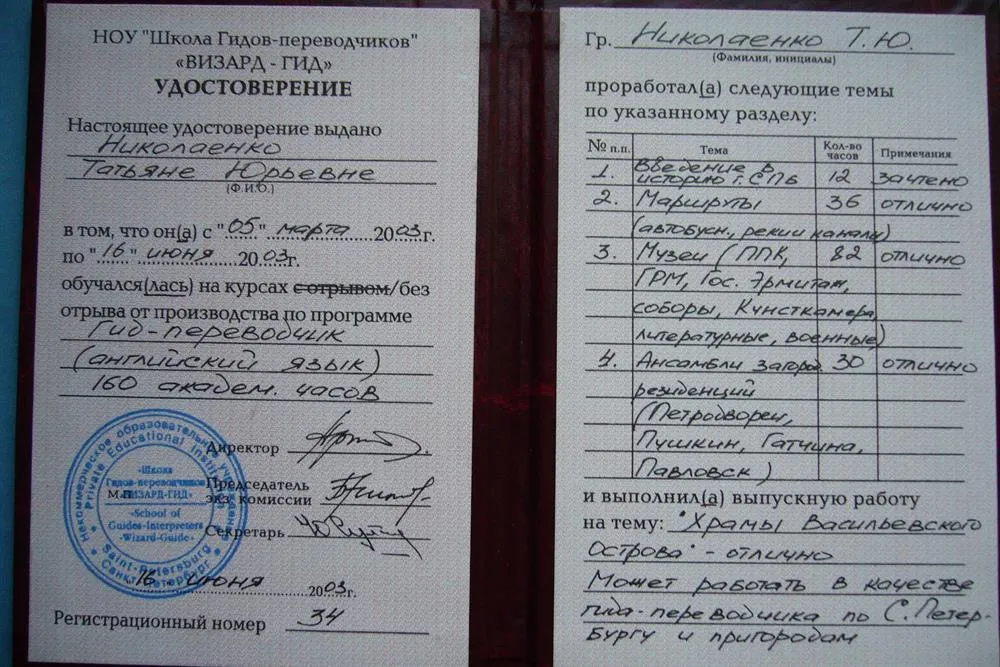 НОУ "Школа Гидов-переводчиков"
«ВИЗАРД - ГИД»
УДОСТОВЕРЕНИЕ
Настоящее удостоверение выдано
Николаенко
Татьяне Юрьевне
(Ф.И.О.)
в том, что он(а) с "05" марта 2003г.
по "16" июня 2003г.
обучался(лась) на курсах с отрывом/без
отрыва от производства по программе
Гид-переводчик
(английский язык)
160 академ. часов
Некоммерческое образовательное учреждение
Private Educational Institution
«Школа
Гидов-переводчиков
«ВИЗАРД-ГИД»
«School of
Guides-Interpreters
«Wizard-Guide»
Saint-Petersburg
Санкт-Петербург
М.П.
Директор
Председатель
экз. комиссии
Секретарь
"16" июня 2003г.
Регистрационный номер 34
Гр. Николаенко Т.Ю.
(Фамилия, инициалы)
проработал(а) следующие темы
по указанному разделу:
№ п.п. Тема Кол-во часов Примечания
1. Введение в историю г. СПб 12 зачтено
2. Маршруты 36 отлично
(автобусн., реки и каналы)
3. Музеи (ППК, 82 отлично
ГРМ, Гос. Эрмитаж,
соборы, Кунсткамера,
литературные, военные)
4. Ансамбли загород. 30 отлично
резиденций
(Петродворец,
Пушкин, Гатчина,
Павловск)
и выполнил(а) выпускную работу
на тему: "Храмы Васильевского
Острова" - отлично
Может работать в качестве
гида-переводчика по С.Петер-
бургу и пригородам